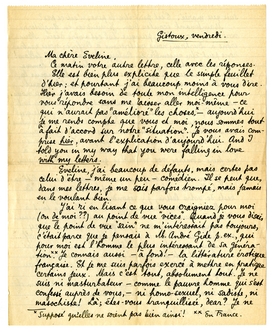 Gistoux, vendredi.
Ma chère Eveline.
Ce matin votre autre lettre, celle avec les réponses.
Elle est bien plus explicite que le simple feuillet
d'hier; et pourtant j'ai beaucoup moins à vous dire.
Hier j'avais besoin de toute mon intelligence pour
vous répondre sans me laisser aller moi-même - ce
qui n'aurait pas "amélioré" les choses, - aujourd'hui
je me rends compte que vous et moi, nous sommes tout
à fait d'accord sur notre "situation". Je vous avais com-
prise hier, avant l'explication d'aujourd'hui. And I
told you in my way that you were falling in love
with my letters.
Eveline, j'ai beaucoup de défauts, mais certes pas
celui d'être - même un peu - comédien. Il se peut que,
dans mes lettres, je me sois parfois trompé, mais jamais
en le voulant bien.
J'ai lu en lisant ce que vous craignez pour moi
(ou de moi??) au point de vue "vices". Quand je vous disais
que le point de vue "sain" ne m'intéressait pas toujours,
c'était parce que je pensais à M. André Gide p. ex., qui
pour moi est l'homme le plus intéressant de sa généra-
tion.** Je connais aussi - à fond - la littérature érotique
française. Et je me suis parfois exercé à mettre en pratique
certains jeux. Mais c'est tout, absolument tout. Je ne
suis ni masturbateur - comme le pauvre homme qui s'est
confessé auprès de vous, - ni homo-sexuel, ni sadiste, ni
masochiste! Là; êtes-vous tranquillisée, dear? Je ne
* Suppose qu'elles ne soient pas bien ainsi! ** En France.